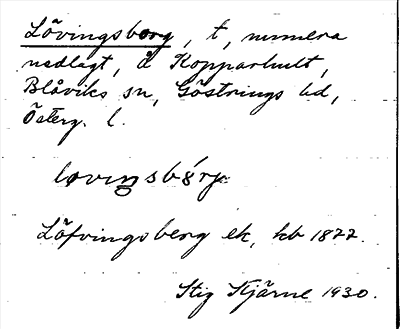 Lövingsborg, t, numera
nedlagt, å Kopparhult,
Blåviks sn, Göstrings hd,
Österg. l.
Löfvingsberg ek, kb 1877.
Stig Stjärne 1930.